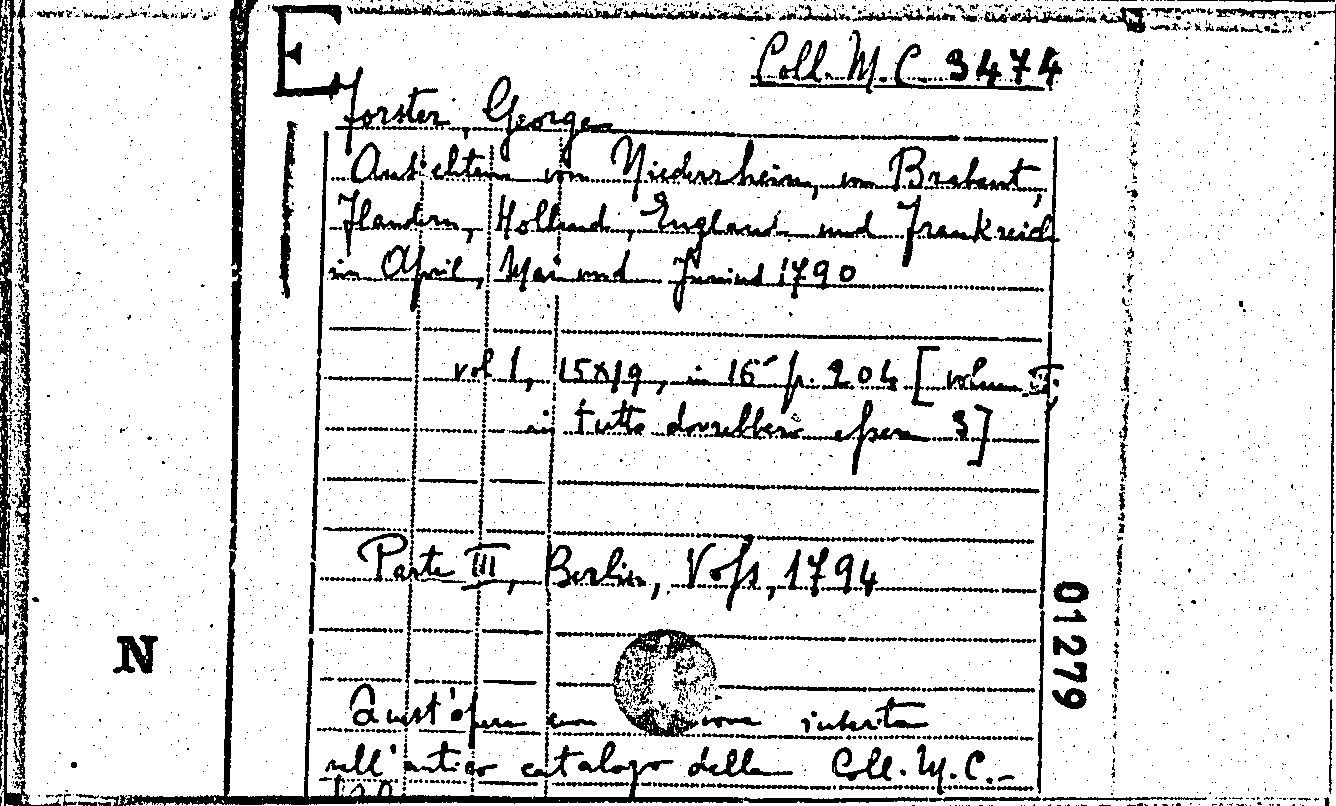 E
Coll. M. C. 3474
Forster, George
Ansichten vom Niederrhein, von Brabant,
Flandern, Holland, England und Frankreich
im April, Mai und Junius 1790
vol 1, 15x19, in 16° p. 204 [volume II,
in tutto dovrebbero essere 3]
Parte III, Berlin, Voss, 1794
01279
N
Quest'opera inserita
nell'antico catalogo della Coll. M. C.-